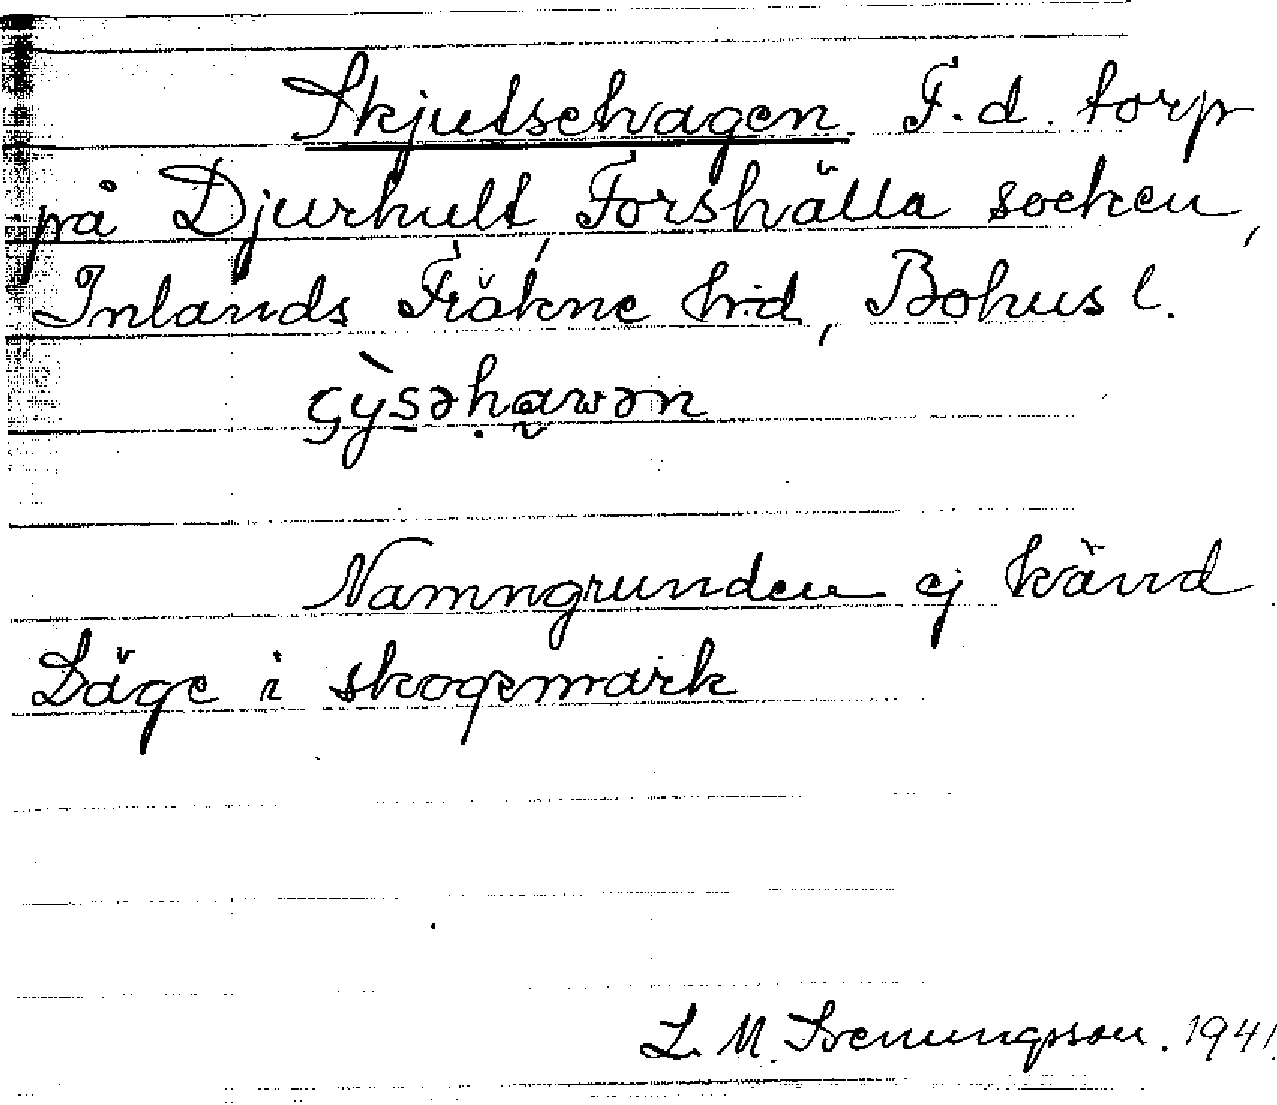 Skjutsehagen F.d. torp
på Djurhult, Forshälla socken,
Inlands Fräkne hrd, Bohus l.
Namngrunden ej känd
Läge i skogsmark
L. M. Svenungsson. 1941.